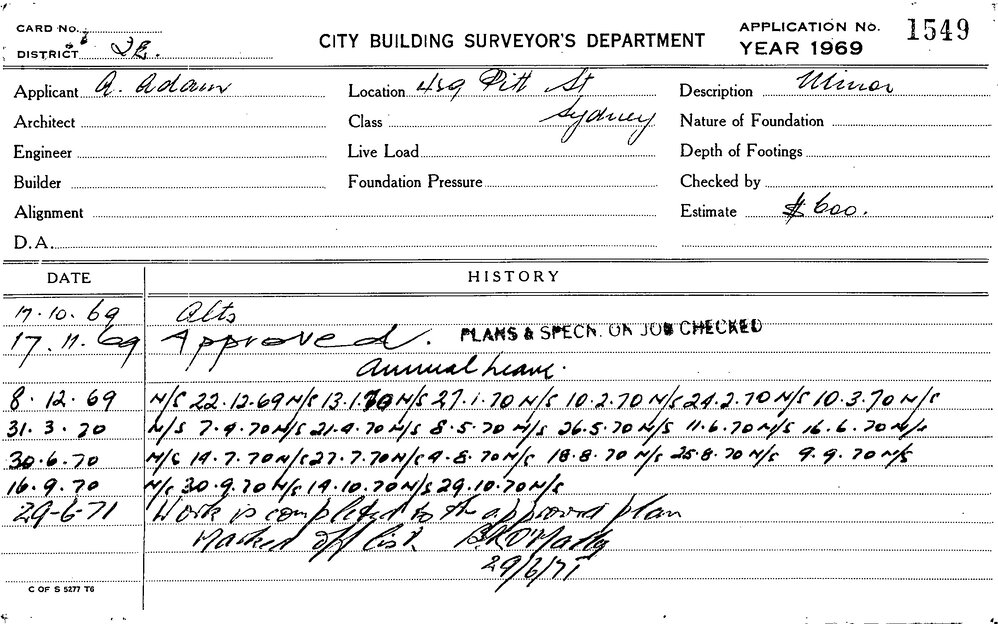 CARD No.
DISTRICT 2B.
CITY BUILDING SURVEYOR'S DEPARTMENT
APPLICATION No. 1549
YEAR 1969
Applicant A. Adam
Location 489 Pitt St
Sydney
Description Minor
Architect
Class
Nature of Foundation
Engineer
Live Load
Depth of Footings
Builder
Foundation Pressure
Checked by
Alignment
Estimate $600.
D.A.
DATE HISTORY
17.10.69 Alts
17.11.69 Approved. PLANS & SPECN. ON JOB CHECKED
Annual Leave.
8.12.69 N/S 22.12.69 N/S 13.1.70 N/S 27.1.70 N/S 10.2.70 N/S 24.2.70 N/S 10.3.70 N/S
31.3.70 N/S 7.4.70 N/S 21.4.70 N/S 8.5.70 N/S 26.5.70 N/S 11.6.70 N/S 16.6.70 N/S
30.6.70 N/S 14.7.70 N/S 27.7.70 N/S 4.8.70 N/S 18.8.70 N/S 25.8.70 N/S 9.9.70 N/S
16.9.70 N/S 30.9.70 N/S 19.10.70 N/S 29.10.70 N/S
29-6-71 Work is completed to the approved plan
Marked off list
29/6/71
C OF S 5277 T6